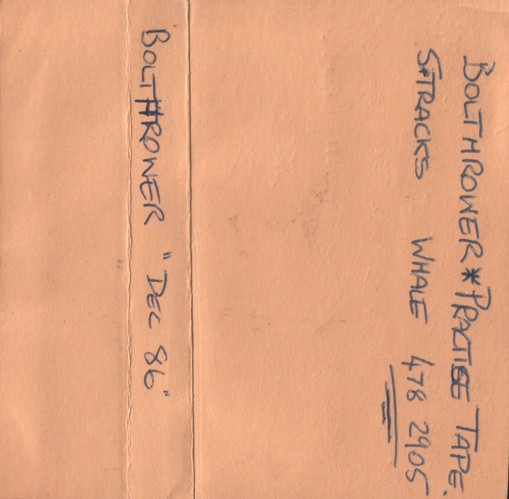 BOLTHROWER * PRACTISE TAPE.
5 TRACKS WHALE 478 2905
BOLTHROWER "DEC 86"